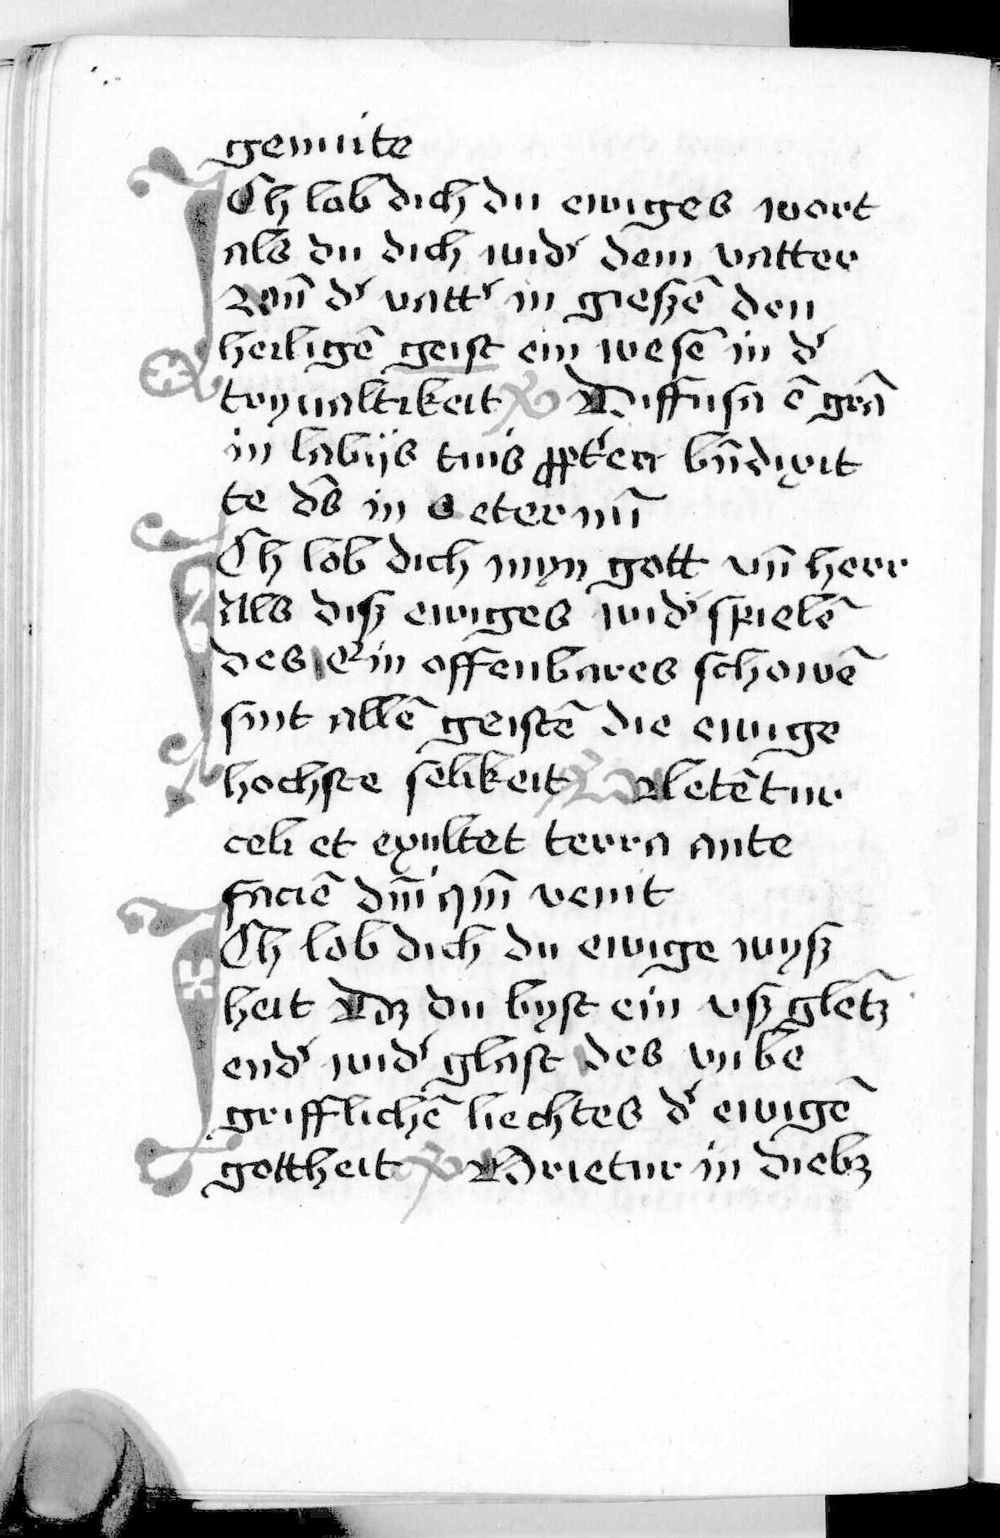 gemuite
ICh lob dich du ewiges wort
als du dich wid᷒ dem vatter
Vnd d᷒ vatt᷒ in gieszē den
heiligē geist ein wesē in d᷒
tryualtikeit ℣ Diffusa ē grā
in labijs tuis ꝓpt᷒ea bn̄dixit
te dn̄s in eeternū
ICh lob dich myn gott vn̄ herr
Als disz ewiges wid᷒ spielē
des Ein offenbares schowē
sint allē geistē die ewige
hochste selikeit ℣ Letētur
celi et exultet terra ante
faciē dn̄i qm̄ venit
ICh lob dich du ewige wysz
heit Dz du byst ein vsz glētz
end᷒ wid᷒ glast des vnbe
grifflichē liechtes d᷒ ewigē
gottheit ℣ Orietur in diebꝫ